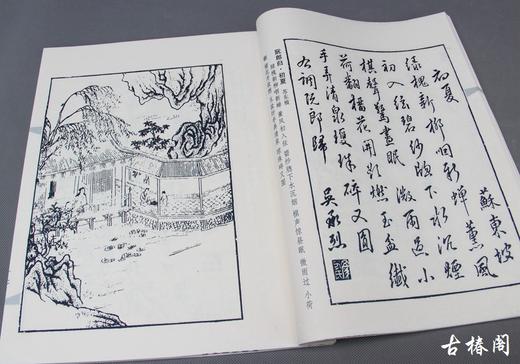 初夏
蘇東坡
綠槐新柳咽新蟬薰風
初入弦碧紗窗下水沉煙
棋聲驚晝眠微雨過小
荷翻榴花開欲燃玉盆纖
手弄清泉瓊珠碎又圓
右調阮郎歸
阮郎归·初夏 苏东坡
绿槐新柳咽新蝉 薰风初入弦 碧纱窗下水沉烟 棋声惊昼眠 微雨过 小荷
翻 榴花开欲燃 玉盆纤手弄清泉 琼珠碎又圆
古椿阁